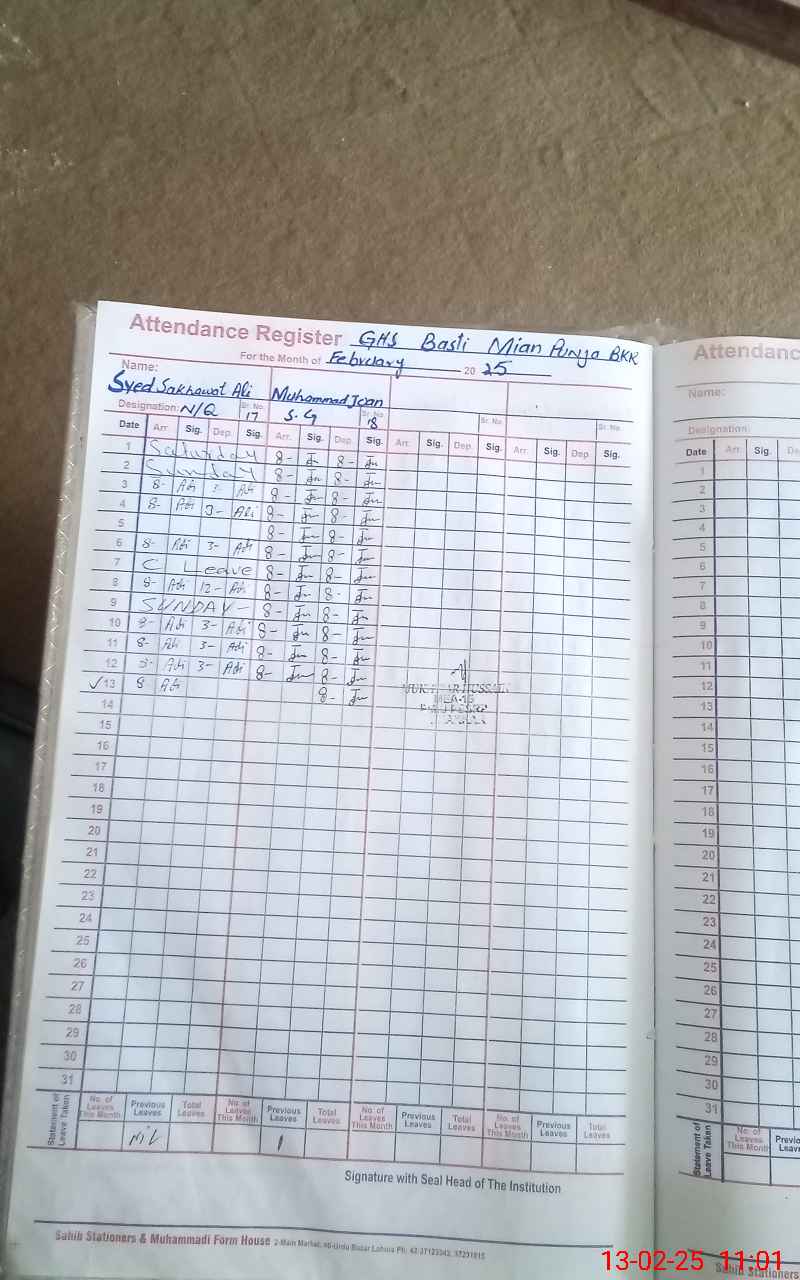 Attendance Register GHS Basti Mian Punja BKR
For the Month of February 2025
Name:
Syed Sakhawat Ali Muhammad
Designation: N/Q Sr. No. 17 S.G Sr. No. 18 Sr. No. Sr. No.
Date Arr. Sig. Dep. Sig. Arr. Sig. Dep. Sig. Arr. Sig. Dep. Sig. Arr. Sig. Dep. Sig.
1 Saturday 8- 8-
2 Sunday 8- 8-
3 8- Ali 3- Ali 8- 8-
4 8- Ali 3- Ali 8- 8-
5 8- 8-
6 8- Ali 3- Ali 8- 8-
7 C Leave 8- 8-
8 8- Ali 12- Ali 8- 8-
9 SUNDAY- 8- 8-
10 8- Ali 3- Ali 8- 8-
11 8- Ali 3- Ali 8- 8-
12 8- Ali 3- Ali 8- 8-
13 8- Ali 8-
14
15
16
17
18
19
20
21
22
23
24
25
26
27
28
29
30
31
Statement of Leave Taken
No. of Leaves This Month Previous Leaves Total Leaves No. of Leaves This Month Previous Leaves Total Leaves No. of Leaves This Month Previous Leaves Total Leaves No. of Leaves This Month Previous Leaves Total Leaves
Nil 1
Signature with Seal Head of The Institution
Sahib Stationers & Muhammadi Form House 2-Main Market, Urdu Bazar Lahore Ph: 42-37123342, 37231915
Attendanc
Name:
Designation:
Date Arr. Sig. Dep.
1
2
3
4
5
6
7
8
9
10
11
12
13
14
15
16
17
18
19
20
21
22
23
24
25
26
27
28
29
30
31
Statement of Leave Taken
No. of Leaves This Month Previo Leave
Sahib Stationers
13-02-25 11:01